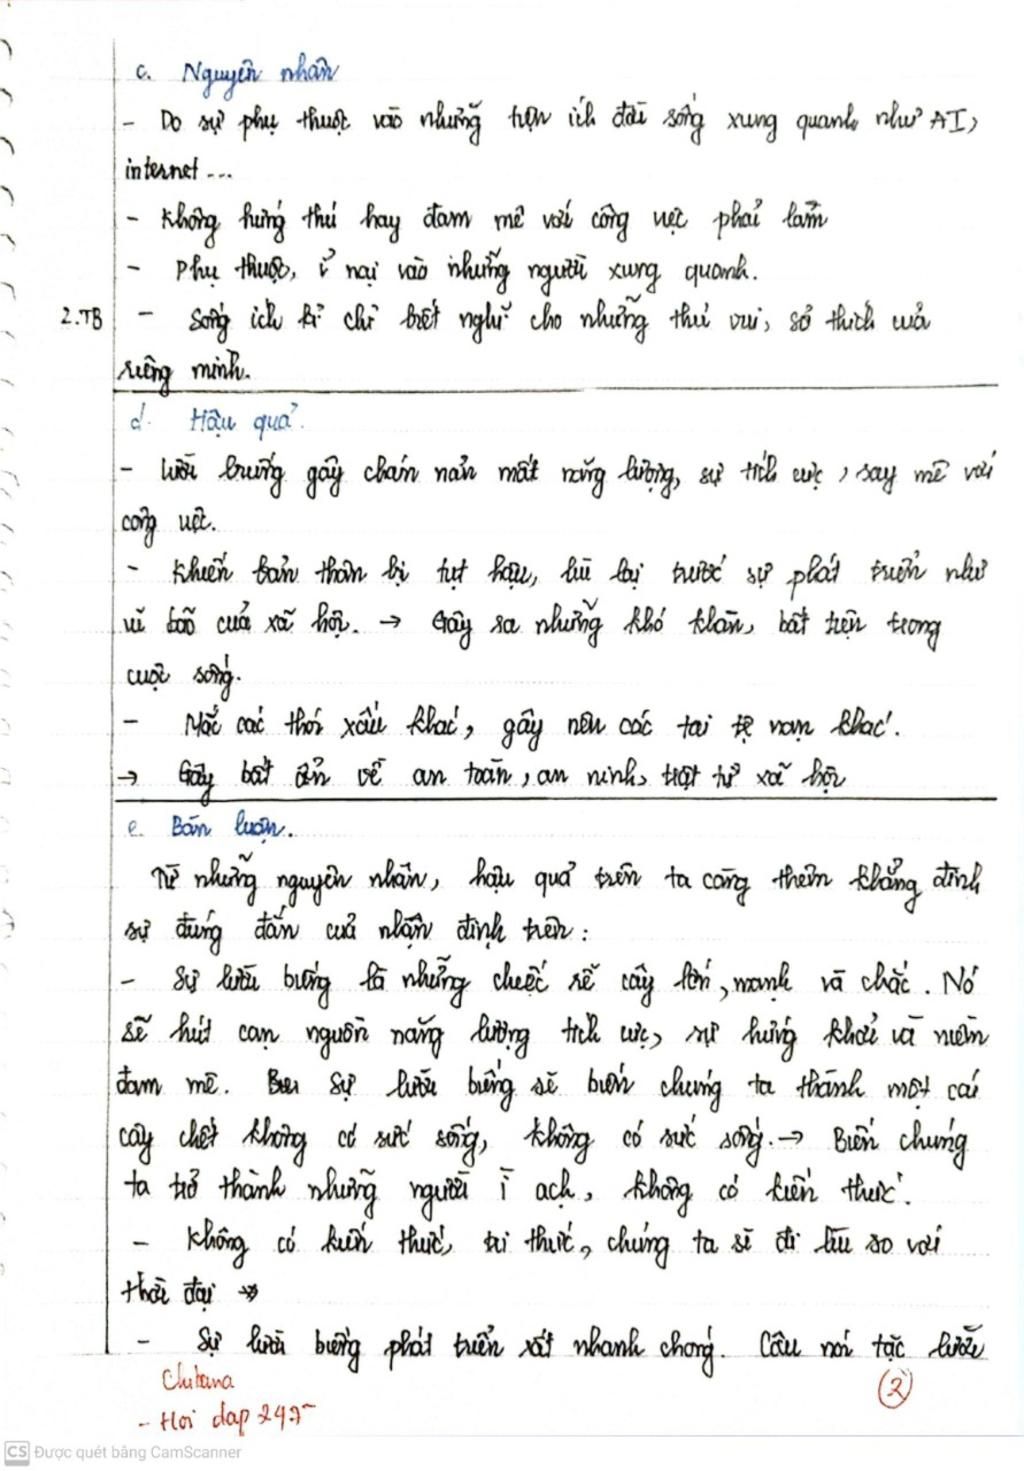 c. Nguyên nhân
- Do sự phụ thuộc vào những tiện ích đời sống xung quanh như AI,
internet...
- Không hứng thú hay đam mê với công việc phải làm
- Phụ thuộc, ỉ nại vào những người xung quanh.
2.TB - Sống ích kỉ chỉ biết nghĩ cho những thú vui, sở thích của
riêng mình.
d. Hậu quả.
- Lười biếng gây chán nản mất năng lượng, sự tích cực, say mê với
công việc.
- Khiến bản thân bị tụt hậu, lùi lại trước sự phát triển như
vũ bão của xã hội. → Gây ra những khó khăn, bất tiện trong
cuộc sống.
- Mắc các thói xấu khác, gây nên các tai tệ nạn khác.
→ Gây bất ổn về an toàn, an ninh, trật tự xã hội
e. Bàn luận.
Từ những nguyên nhân, hậu quả trên ta càng thêm khẳng định
sự đúng đắn của nhận định trên:
- Sự lười biếng là những chiếc rễ cây lớn, mạnh và chắc. Nó
sẽ hút cạn nguồn năng lượng tích cực, sự hứng khởi và niềm
đam mê. Sự lười biếng sẽ biến chúng ta thành một cái
cây chết không có sức sống, không có sức sống. → Biến chúng
ta trở thành những người ì ạch, không có kiến thức.
- Không có kiến thức, tri thức, chúng ta sẽ đi lùi so với
thời đại →
- Sự lười biếng phát triển rất nhanh chóng. Câu nói tặc lưỡi
Chitana
- Hoi dap 247
2
CS Được quét bằng CamScanner